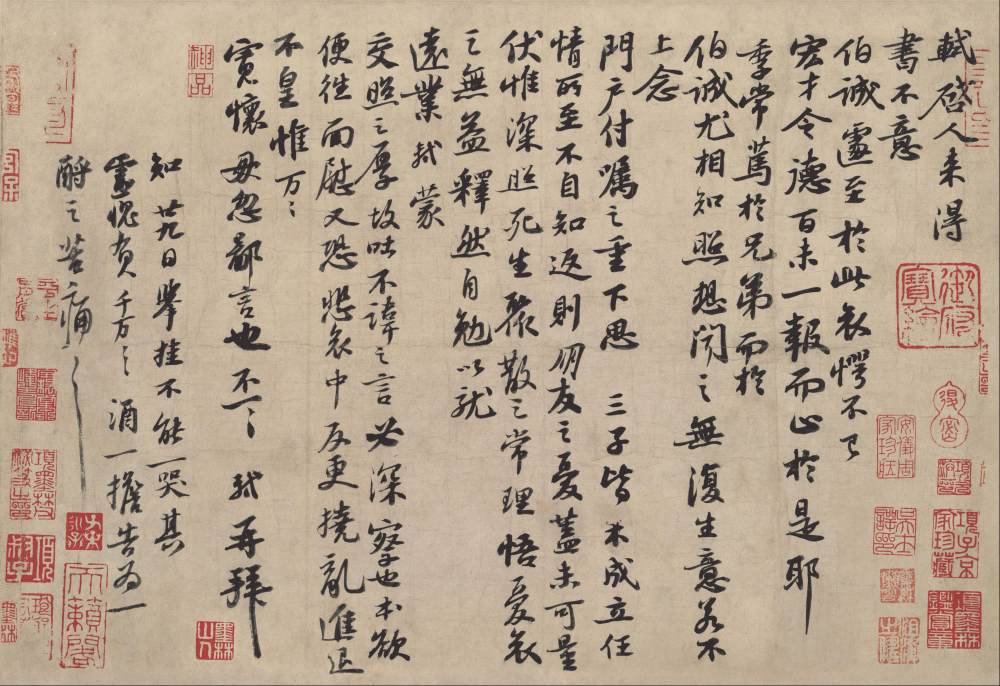 軾啓人来得
書不意
伯誠遽至於此哀愕不已
宏才令德百未一報而止於是耶
季常篤於兄弟而於
伯誠尤相知照想聞之無復生意若不
上念
門户付囑之重下思三子皆未成立任
情所至不自知返則朋友之憂蓋未可量
伏惟深照死生聚散之常理悟憂哀
之無益釋然自勉以就
遠業軾蒙
交照之厚故吐不諱之言必深察也本欲
便往面慰又恐悲哀中反更撓亂進退
不皇惟万〻
寬懷毋忽鄙言也不一〻軾再拜
知廿九日舉挂不能一哭其
靈愧負千万〻酒一擔告為一
酹之苦痛〻
御府寶繪
安儀周家珍藏
項子京家珍藏
神品
墨林山人
天籟閣